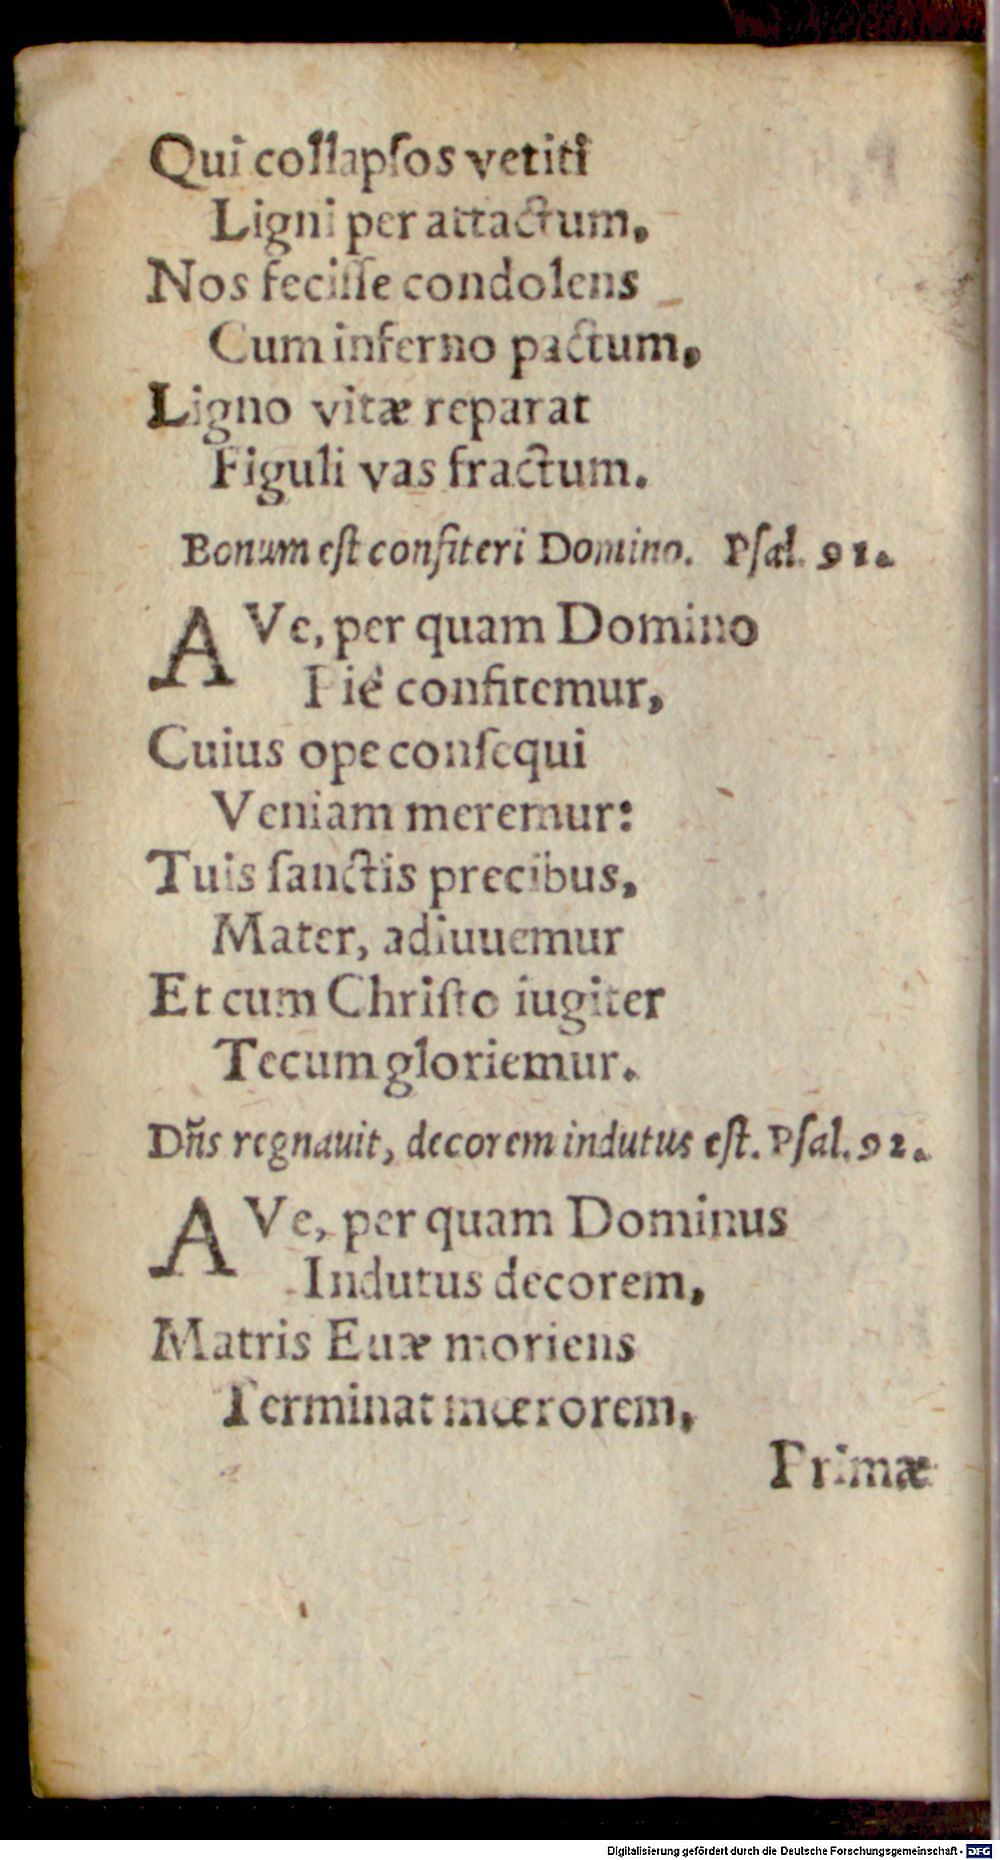 Qui collapſos vetiti
Ligni per attactum,
Nos feciſſe condolens
Cum inferno pactum,
Ligno vitæ reparat
Figuli vas fractum.
Bonum eſt confiteri Domino. Pſal. 91.
AVe, per quam Domino
Piè confitemur,
Cuius ope conſequi
Veniam meremur:
Tuis ſanctis precibus,
Mater, adiuuemur
Et cum Chriſto iugiter
Tecum gloriemur.
Dñs regnauit, decorem indutus eſt. Pſal. 92.
AVe, per quam Dominus
Indutus decorem,
Matris Euæ moriens
Terminat mœrorem,
Primæ
Digitalisierung gefördert durch die Deutsche Forschungsgemeinschaft - DFG